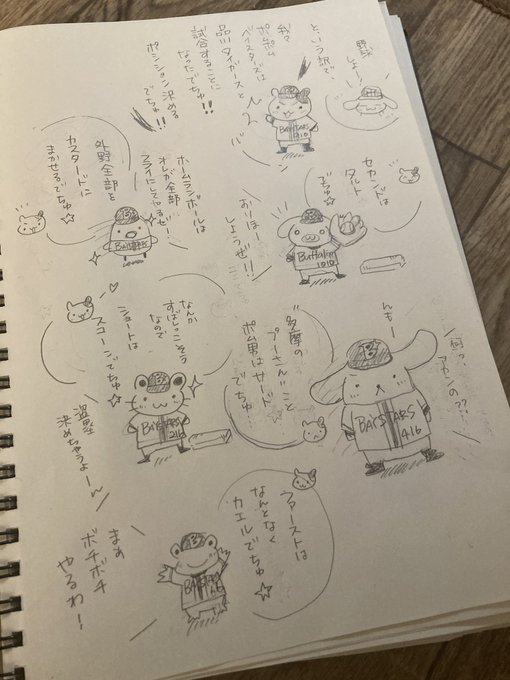 野球
しよー!
という訳で、
我々
ポムポム
ベイスターズは
品川タイガースと
試合することに
なったでちゅ!!
ポジション決める
でちゅ!!
BAYSTARS
1010
セカンドは
タルト
でちゅ☆
おりほー
しょうぜ!!
Buffaloes
1010
ホームランボールは
オレが全部
フライにしてやるぜ!
外野全部を
カスタードに
まかせるでちゅ☆
BAYSTARS
んもー
何っ、
アカンの??
BAYSTARS
416
"多摩の
プーさん"こと
ポム男はサード
でちゅ
なんか
すばしっこそう
なので
ショートは
スコーンでちゅ☆
BAYSTARS
216
盗塁
決めちゃうよー
ファーストは
なんとなく
カエルでちゅ☆
BAYSTARS
まぁ
ボチボチ
やるわー!